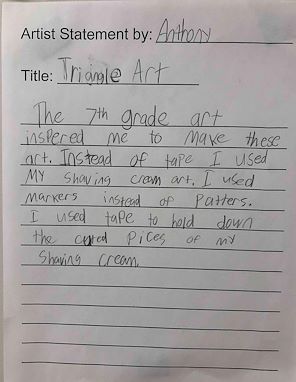 Artist Statement by: Anthony
Title: Triangle Art
The 7th grade art
inspered me to make these
art. Instead of tape I used
My shaving cream art. I used
markers instead of Patters.
I used tape to hold down
the cured Pices of my
Shaving Cream.